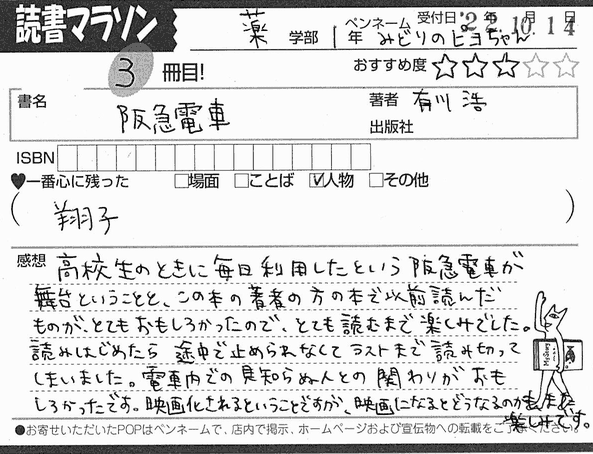 読書マラソン
薬 学部 1年 ペンネーム みどりのピヨちゃん 受付日 '2 年 10月 14日
3 冊目!
おすすめ度 ☆☆☆☆☆
書名 阪急電車
著者 有川 浩
出版社
ISBN
♥一番心に残った □場面 □ことば ☑人物 □その他
( 翔子 )
感想 高校生のときに毎日利用したという阪急電車が
舞台ということと、この本の著者の方の本で以前読んだ
ものが、とてもおもしろかったので、とても読むまで楽しみでした。
読みはじめたら 途中で止められなくてラストまで読み切って
しまいました。電車内での見知らぬ人との関わりがおも
しろかったです。映画化されるということですが、映画になるとどうなるのか
楽しみです。
●お寄せいただいたPOPはペンネームで、店内で掲示、ホームページおよび宣伝物への転載をご了承ください。